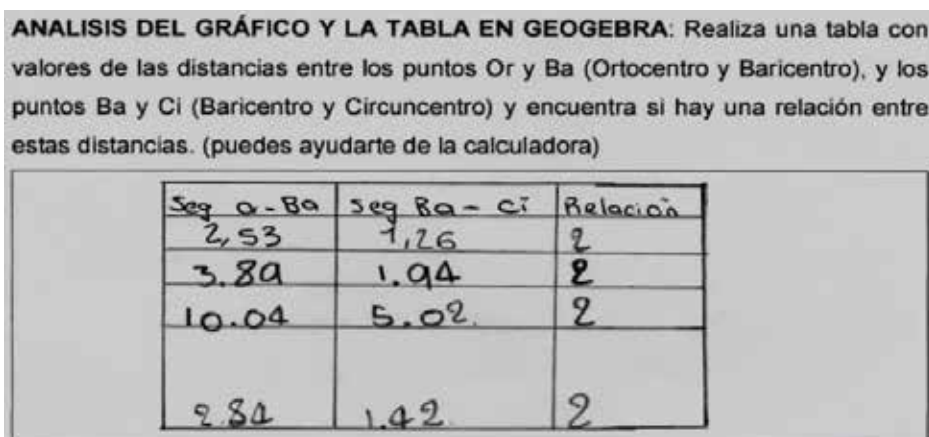 ANALISIS DEL GRÁFICO Y LA TABLA EN GEOGEBRA: Realiza una tabla con
valores de las distancias entre los puntos Or y Ba (Ortocentro y Baricentro), y los
puntos Ba y Ci (Baricentro y Circuncentro) y encuentra si hay una relación entre
estas distancias. (puedes ayudarte de la calculadora)
Seg Or-Ba seg Ba - Ci Relación
2,53 1,26 2
3.89 1.94 2
10.04 5.02. 2
2.84 1.42. 2